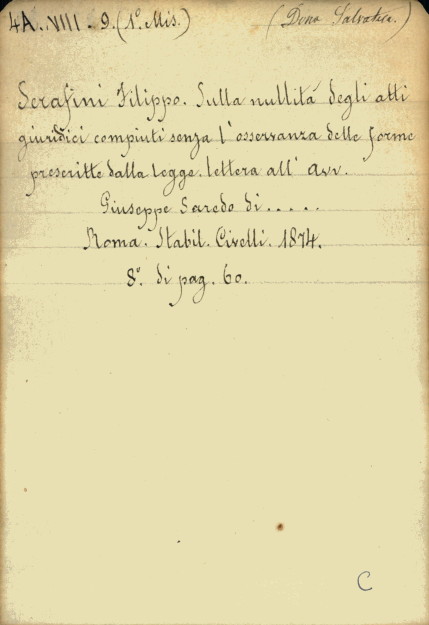 4A. VIII. 9. (1º Mis.) (Dono Salvatica.)
Serafini Filippo. Sulla nullitá degli atti
giuridici compiuti senza l'osservanza delle forme
prescritte dalla legge. lettera all' Avv.
Giuseppe Saredo di.....
Roma. Stabil. Civelli. 1874.
8º. di pag. 60.
C